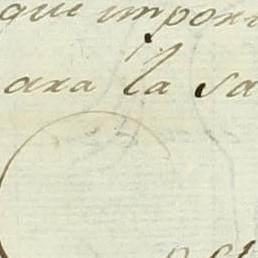 que impor
ara la sa